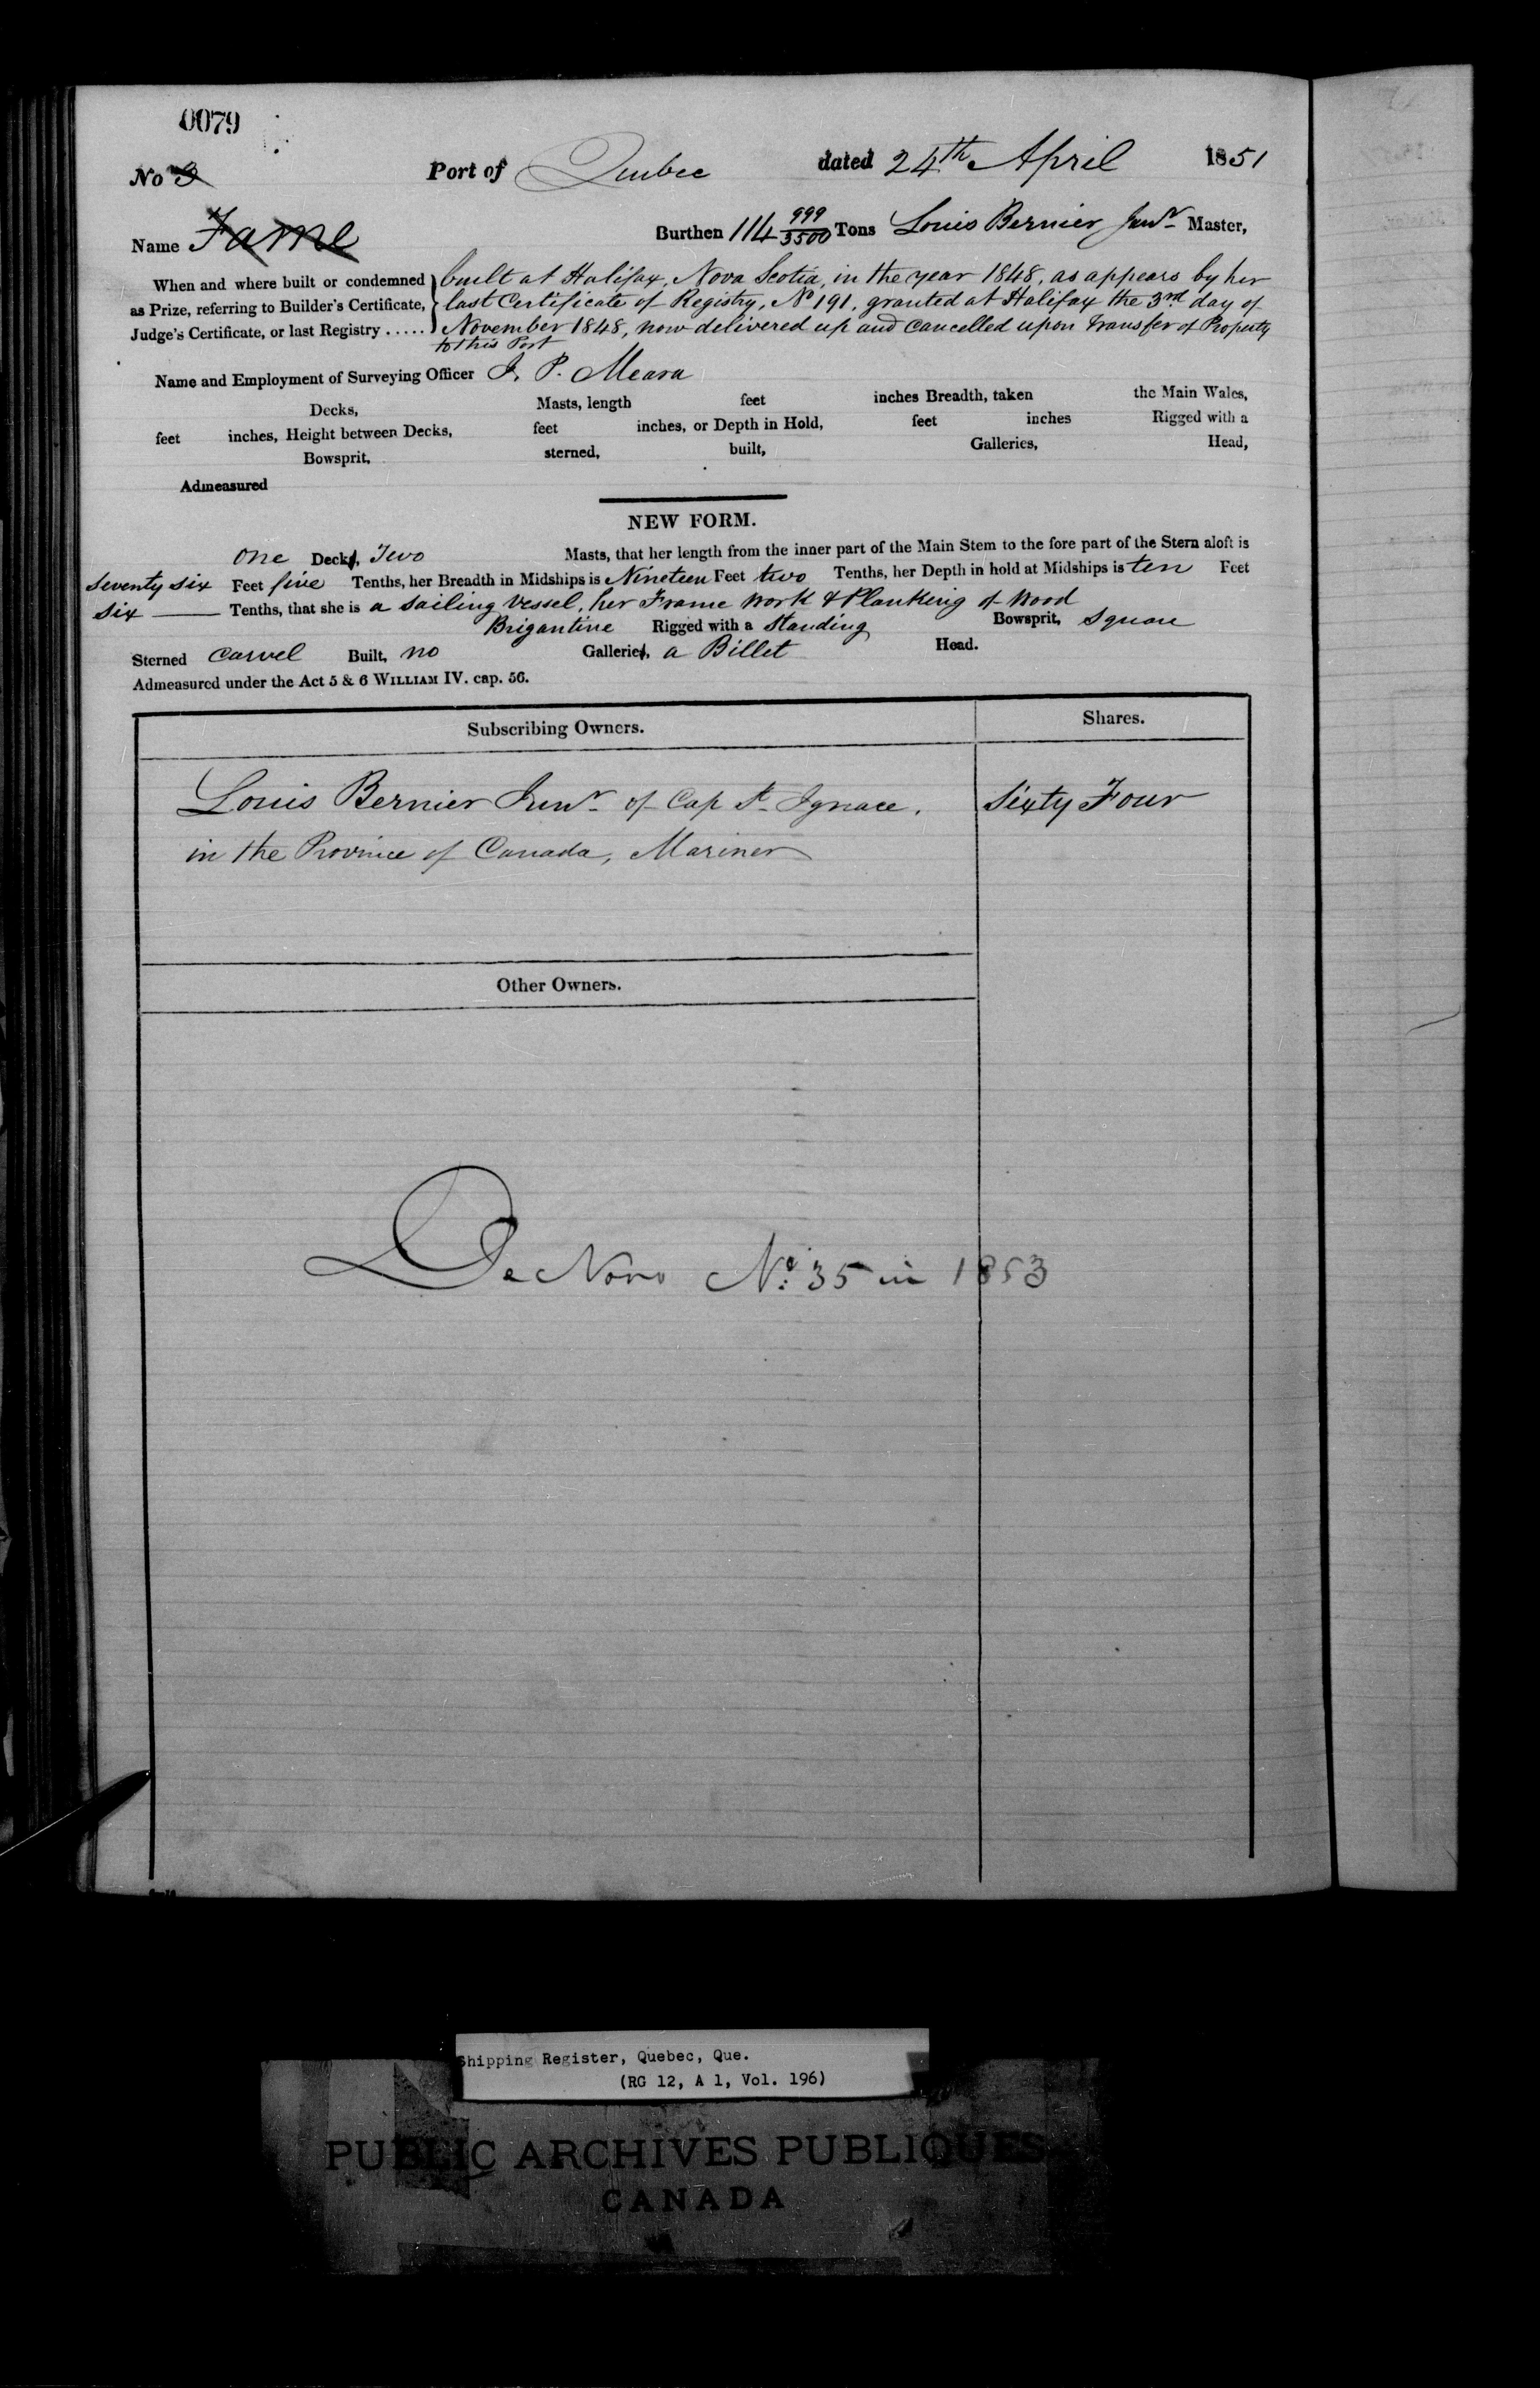 0079
No 9 Port of Quebec dated 24th April 1851
Name Fame Burthen 114 999/3500 Tons Louis Bernier Junr Master,
When and where built or condemned as Prize, referring to Builder's Certificate, Judge's Certificate, or last Registry .....
built at Halifax, Nova Scotia, in the year 1848, as appears by her
last Certificate of Registry, No 191, granted at Halifax the 3rd day of
November 1848, now delivered up and cancelled upon transfer of Property
to this Port
Name and Employment of Surveying Officer J. P. Meara
Decks, Masts, length feet inches Breadth, taken the Main Wales,
feet inches, Height between Decks, feet inches, or Depth in Hold, feet inches Rigged with a
Bowsprit, sterned, built, Galleries, Head,
Admeasured
NEW FORM.
One Deck, Two Masts, that her length from the inner part of the Main Stem to the fore part of the Stern aloft is
Seventy six Feet five Tenths, her Breadth in Midships is Nineteen Feet two Tenths, her Depth in hold at Midships is ten Feet
Six Tenths, that she is a sailing Vessel, her Frame work & Planking of Wood
Brigantine Rigged with a Standing Bowsprit, Square
Sterned Carvel Built, no Galleries, a Billet Head.
Admeasured under the Act 5 & 6 WILLIAM IV. cap. 56.
Subscribing Owners. Shares.
Louis Bernier Junr of Cap St Ignace, Sixty Four
in the Province of Canada, Mariner
Other Owners.
De Novo No 35 in 1853
Shipping Register, Quebec, Que.
(RG 12, A 1, Vol. 196)
PUBLIC ARCHIVES PUBLIQUES
CANADA